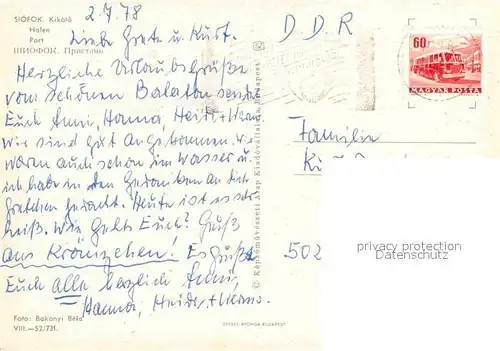 2.7.78
SIÓFOK. Kikötő
Hafen
Port
ШИОФОК. Пристань
Liebe Grete u. Kurt.
Herzliche Urlaubsgrüße
vom schönen Balaton senden
Euch Anni, Hanna, Heidi +
wir sind gut angekommen.
waren auch schon im Wasser u.
ich habe in den Gedanken an dich
Gretchen gedacht. Heute ist es sehr
heiß. Wie Gehts Euch? Gruß
aus Krönzehen! Es grüßt
Euch alle herzlich Anni,
Hanna, Heidi +
Foto: Bakonyi Béla
VIII.—52/731.
© Képzőművészeti Alap Kiadóvállalata, Budapest
OFFSET-NYOMDA BUDAPEST
DDR
60f
MAGYAR POSTA
Familie
502
privacy protection
Datenschutz